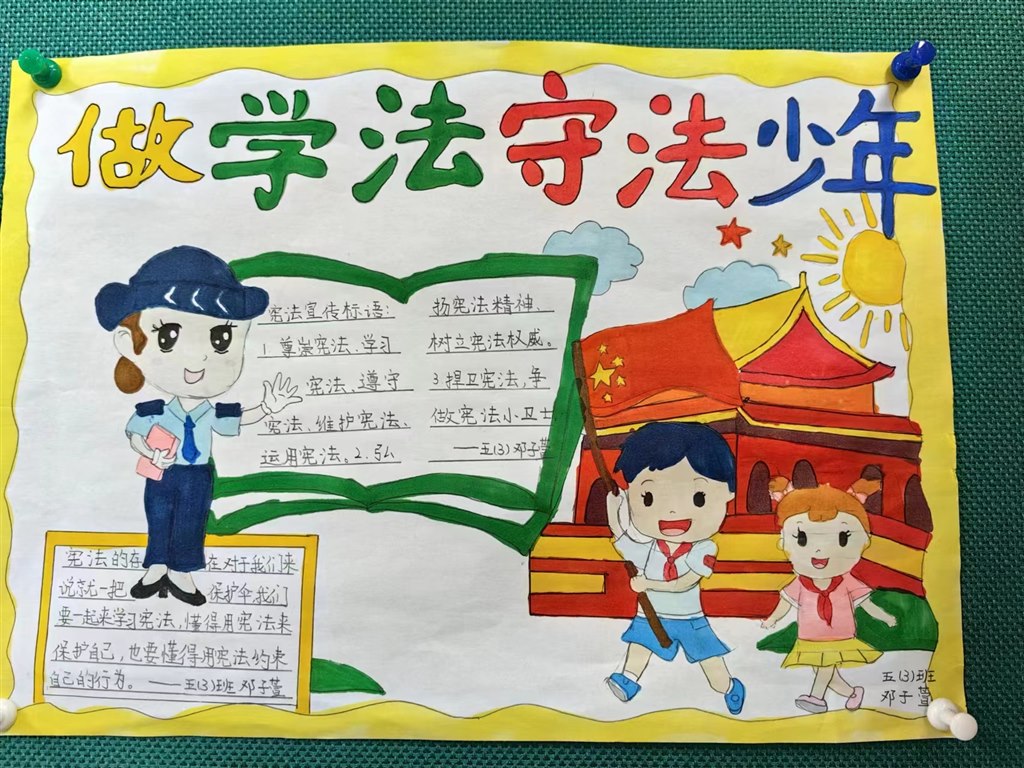 做学法守法少年
宪法宣传标语:
1 尊崇宪法、学习
宪法、遵守
宪法、维护宪法、
运用宪法。2.弘
扬宪法精神、
树立宪法权威。
3 捍卫宪法,争
做宪法小卫士
——五(3)邓子萱
宪法的存在对于我们来
说就一把保护伞我们
要一起来学习宪法,懂得用宪法来
保护自己,也要懂得用宪法约束
自己的行为。——五(3)班 邓子萱
五(3)班
邓子萱